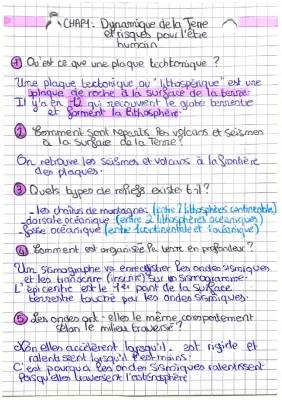 CHAP1. Dynamique de la Terre
et risques pour l'être
humain
① Qu'est ce que une plaque tectonique ?
Une plaque tectonique ou "lithosphérique" est une
plaque de roche à la surface de la terre.
Il y'a en 12 qui recouvrent le globe terrestre
et forment la lithosphère.
② Comment sont repartis les volcans et seismes
à la surface de la Terre ?
On retrouve les seismes et volcans à la frontière
des plaques.
③ Quels types de reliefs existe t-il ?
- les chaînes de montagnes (entre 2 lithosphères continentales)
- dorsale océanique (entre 2 lithosphères océaniques)
- fosse océanique (entre 1 continentale et 1 océanique)
④ Comment est organisée la terre en profondeur ?
Un sismographe va enregistrer les ondes sismiques
et les transcrire (inscrit) sur un sismogramme.
L'épicentre est le 1er point de la surface
terrestre touché par les ondes sismiques.
⑤ Les ondes ont-elles le même comportement
selon le milieu traversé ?
Non elles accélèrent lorsqu'il est rigide et
ralentissent lorsqu'il l'est moins.
C'est pourquoi les ondes sismiques ralentissent
lorsqu'elles traversent l'asténosphère